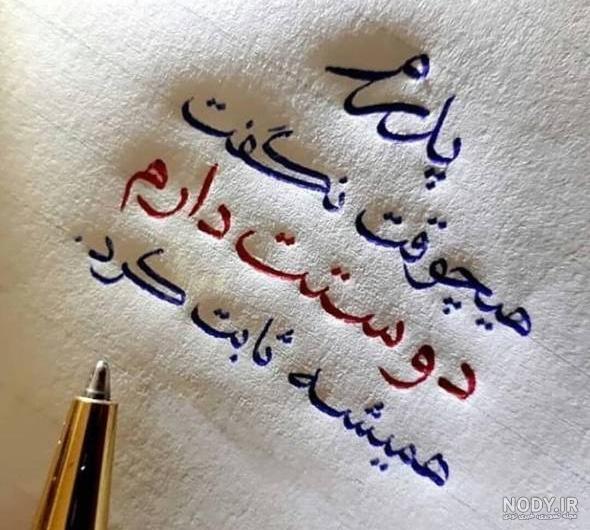 پدرم
هیچوقت نگفت
دوستت دارم
همیشه ثابت کرد.
NODY.IR